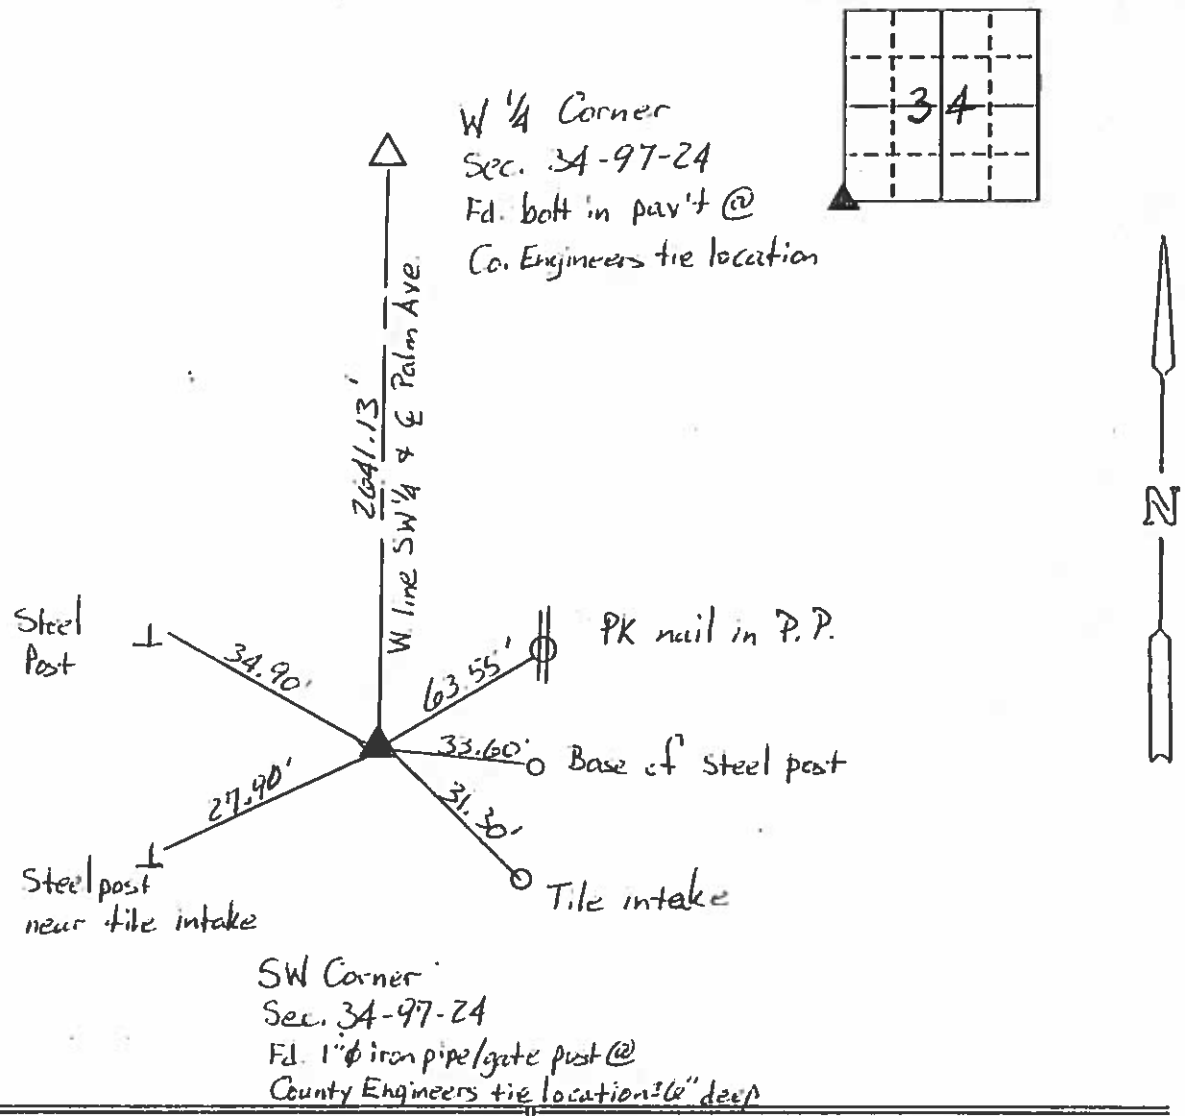 34
W 1/4 Corner
Sec. 34-97-24
Fd. bolt in pav't @
Co. Engineers tie location
2641.13'
W. line SW 1/4 & ℄ Palm Ave.
N
Steel
Post
34.90'
63.55'
PK nail in P.P.
33.60'
Base of Steel post
27.90'
31.30'
Steel post
near tile intake
Tile intake
SW Corner
Sec. 34-97-24
Fd. 1"ϕ iron pipe/gate post @
County Engineers tie location deep